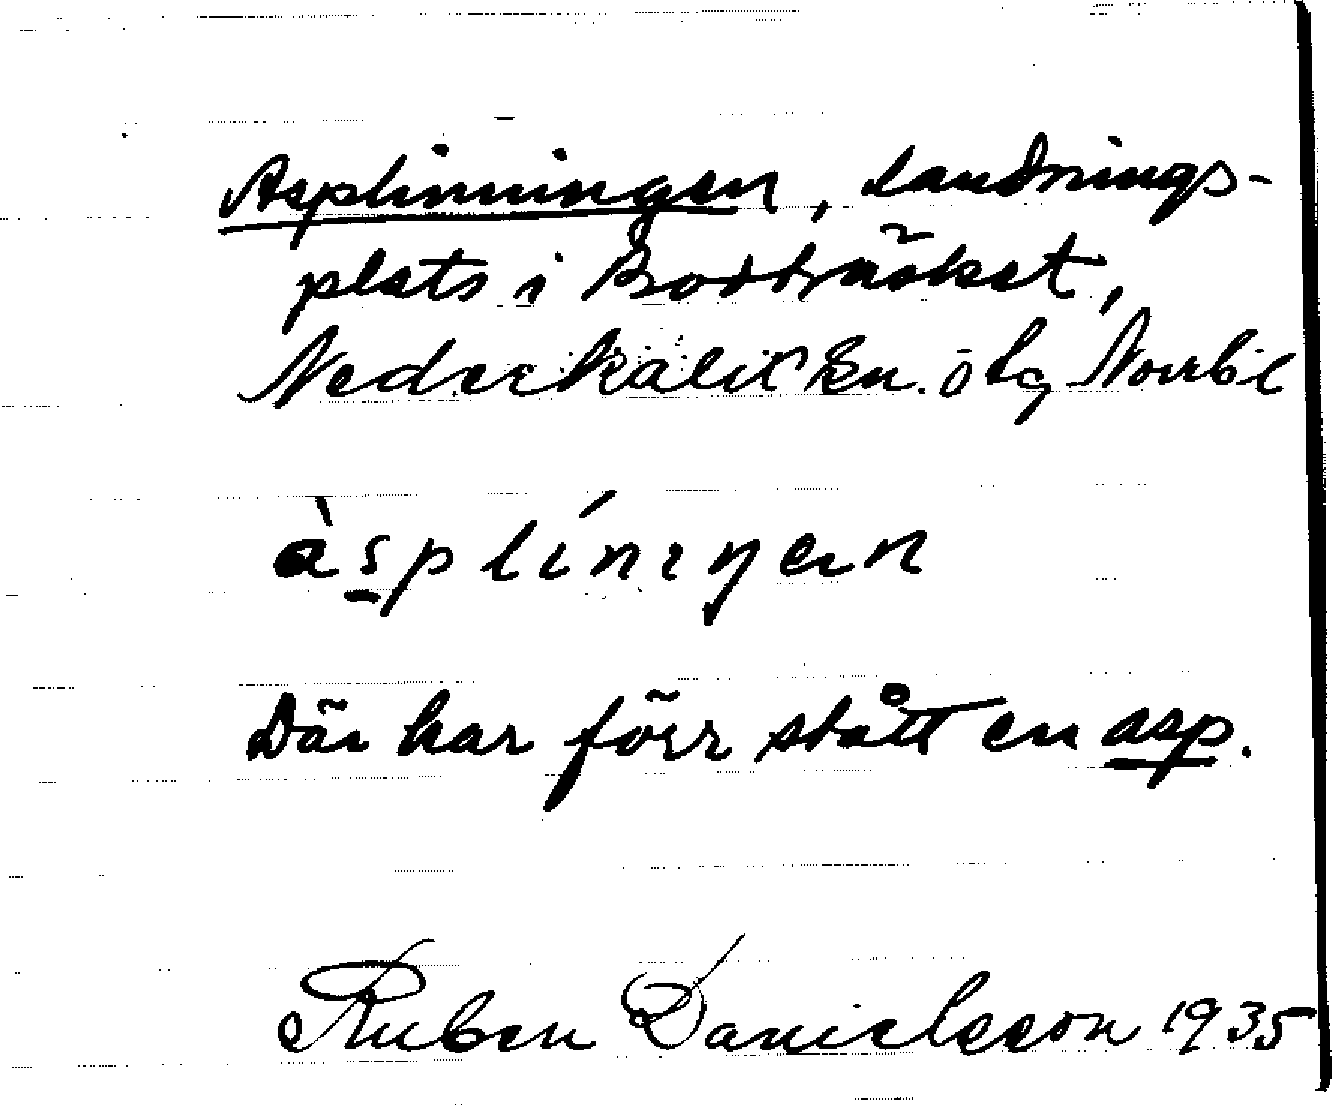 Asplinningen, landnings-
plats i Bodträsket,
Nederkalix sn. ö lg Norrb l
àsplíniŋen
Där har förr stått en asp.
Ruben Danielsson 1935